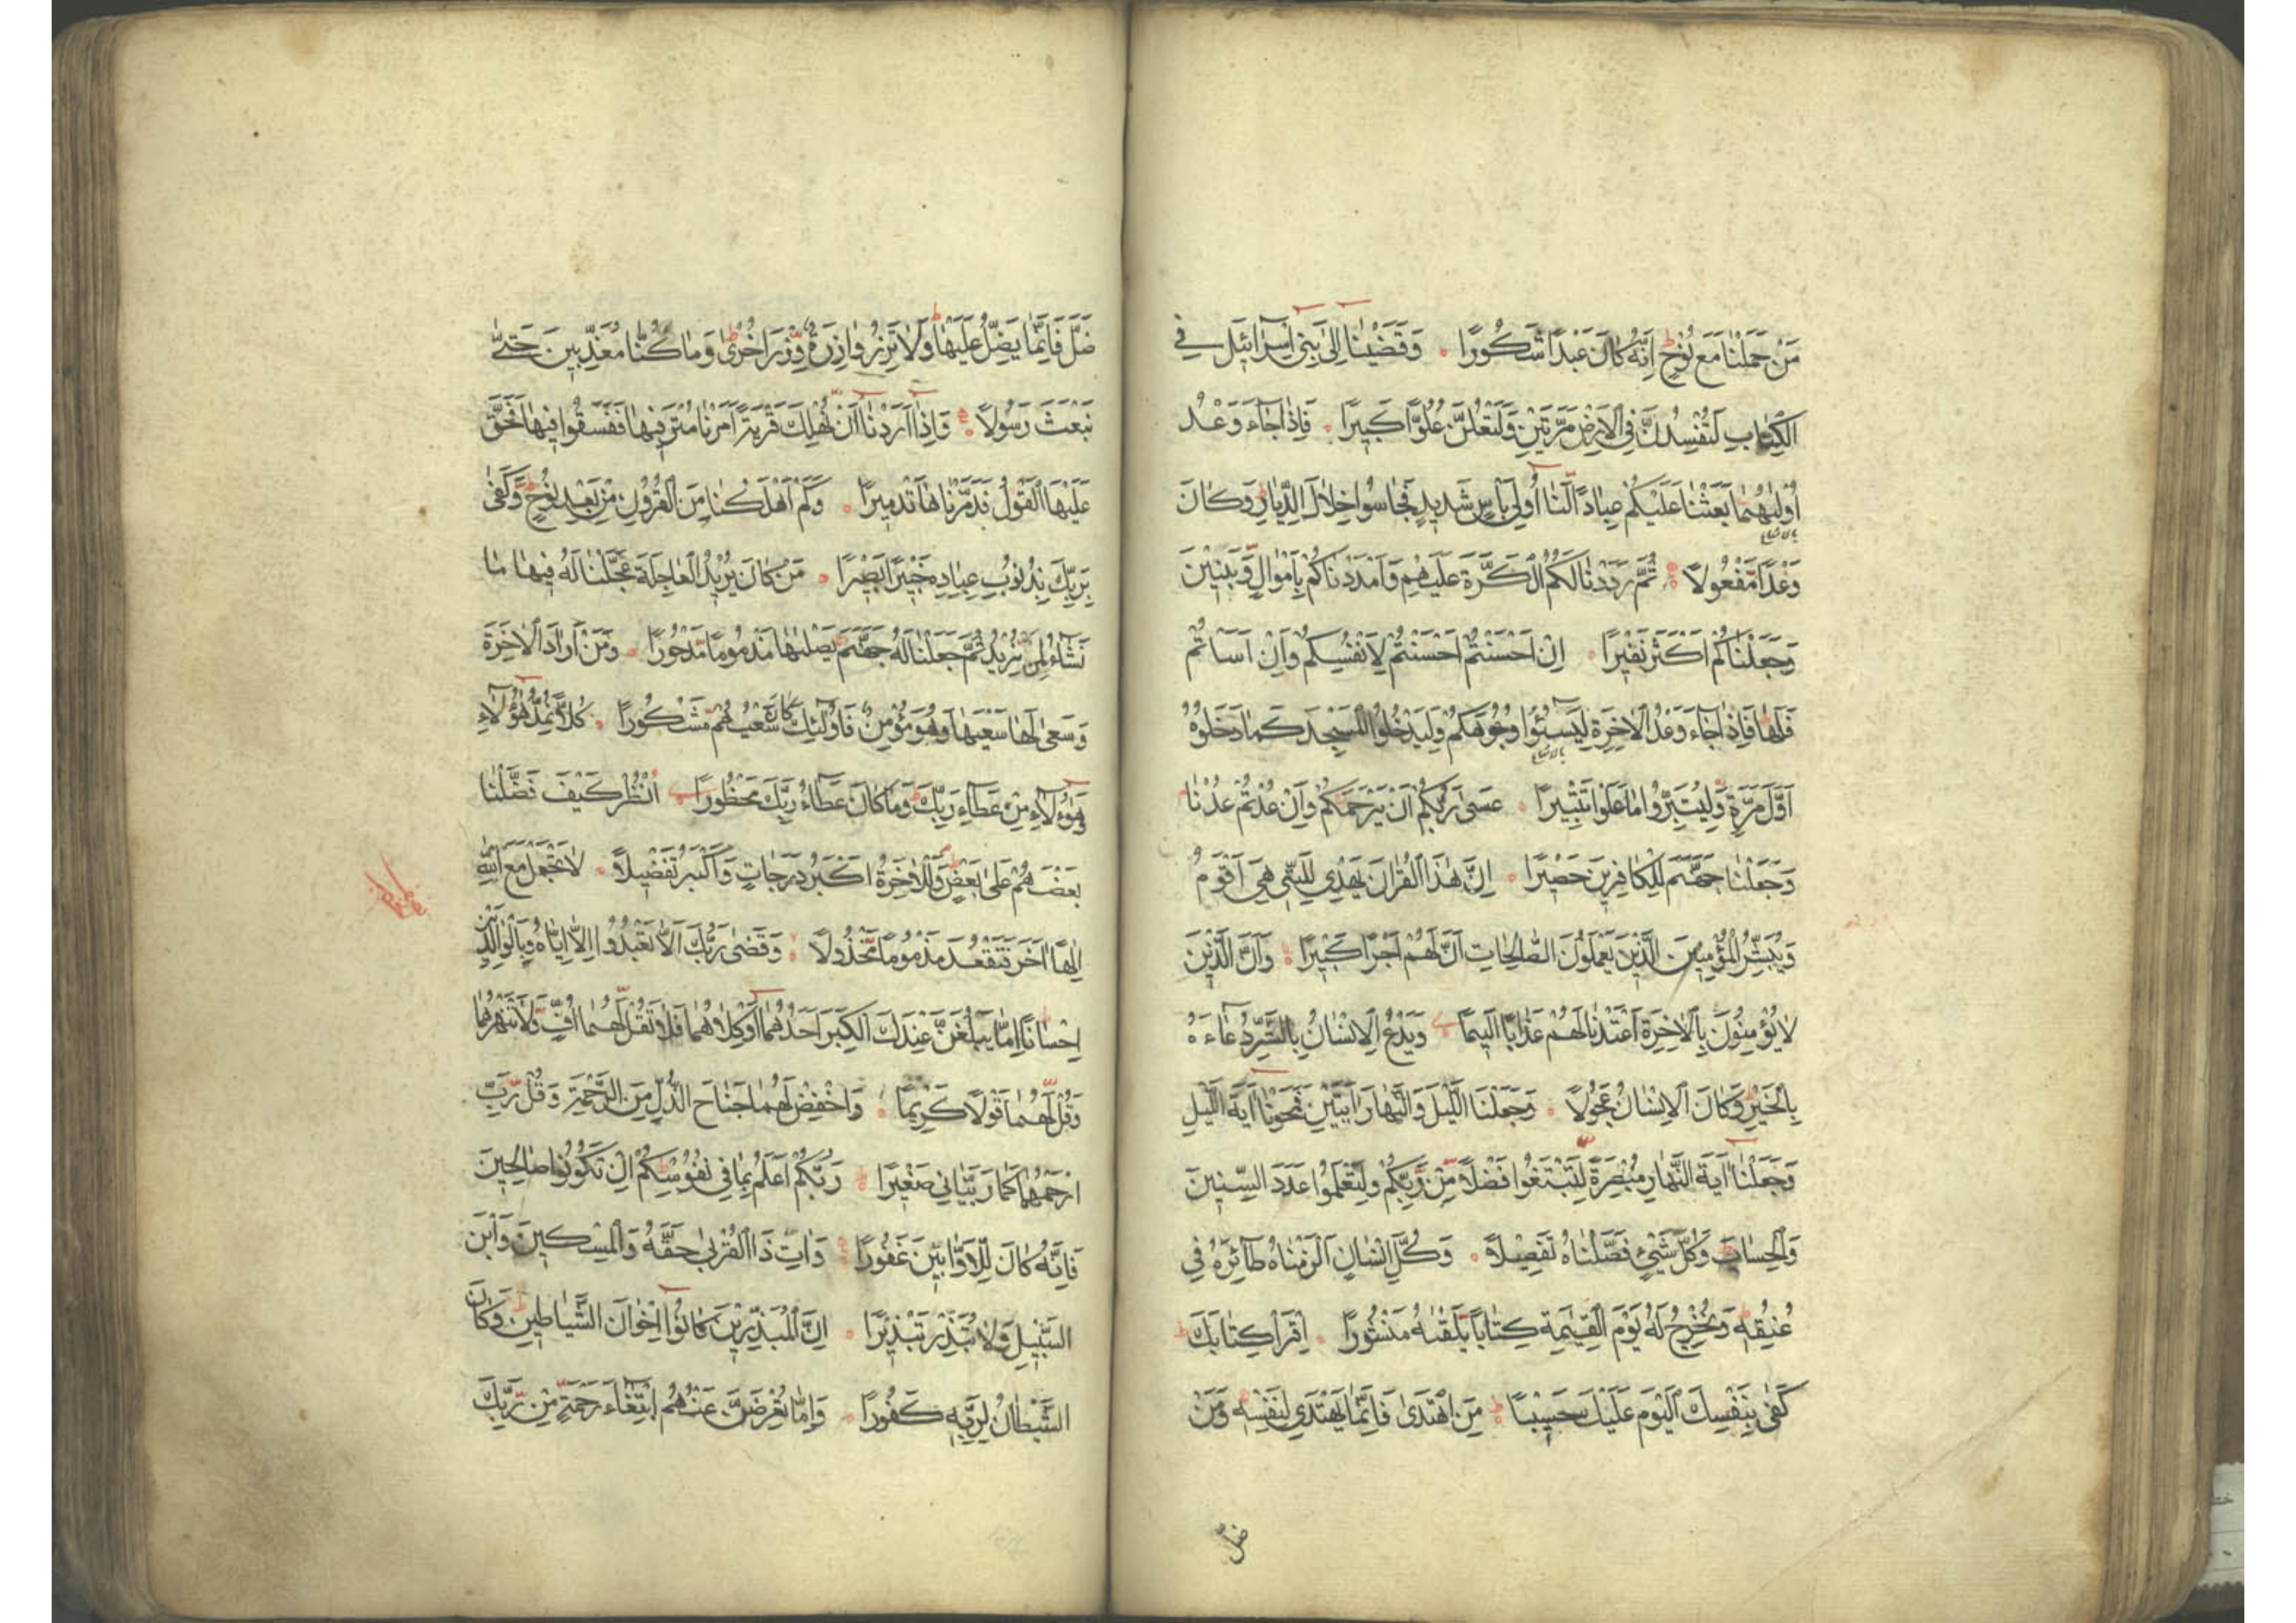 مَنْ حَمَلْنَا مَعَ نُوحٍ اِنَّهُ كَانَ عَبْدًا شَكُورًا وَقَضَيْنَا اِلٰى بَنِي اِسْرَائِيلَ فِي
الْكِتَابِ لَتُفْسِدُنَّ فِي الْاَرْضِ مَرَّتَيْنِ وَلَتَعْلُنَّ عُلُوًّا كَبِيرًا فَاِذَا جَاءَ وَعْدُ
اُوْلٰيهُمَا بَعَثْنَا عَلَيْكُمْ عِبَادًا لَنَا اُولِي بَأْسٍ شَدِيدٍ فَجَاسُوا خِلَالَ الدِّيَارِ وَكَانَ
وَعْدًا مَفْعُولًا ثُمَّ رَدَدْنَا لَكُمُ الْكَرَّةَ عَلَيْهِمْ وَاَمْدَدْنَاكُمْ بِاَمْوَالٍ وَبَنِينَ
وَجَعَلْنَاكُمْ اَكْثَرَ نَفِيرًا اِنْ اَحْسَنْتُمْ اَحْسَنْتُمْ لِاَنْفُسِكُمْ وَاِنْ اَسَأْتُمْ
فَلَهَا فَاِذَا جَاءَ وَعْدُ الْاٰخِرَةِ لِيَسُٓئُوا وُجُوهَكُمْ وَلِيَدْخُلُوا الْمَسْجِدَ كَمَا دَخَلُوهُ
اَوَّلَ مَرَّةٍ وَلِيُتَبِّرُوا مَا عَلَوْا تَتْبِيرًا عَسٰى رَبُّكُمْ اَنْ يَرْحَمَكُمْ وَاِنْ عُدْتُمْ عُدْنَا
وَجَعَلْنَا جَهَنَّمَ لِلْكَافِرِينَ حَصِيرًا اِنَّ هٰذَا الْقُرْاٰنَ يَهْدِي لِلَّتِي هِيَ اَقْوَمُ
وَيُبَشِّرُ الْمُؤْمِنِينَ الَّذِينَ يَعْمَلُونَ الصَّالِحَاتِ اَنَّ لَهُمْ اَجْرًا كَبِيرًا وَاَنَّ الَّذِينَ
لَا يُؤْمِنُونَ بِالْاٰخِرَةِ اَعْتَدْنَا لَهُمْ عَذَابًا اَلِيمًا وَيَدْعُ الْاِنْسَانُ بِالشَّرِّ دُعَاءَهُ
بِالْخَيْرِ وَكَانَ الْاِنْسَانُ عَجُولًا وَجَعَلْنَا اللَّيْلَ وَالنَّهَارَ اٰيَتَيْنِ فَمَحَوْنَا اٰيَةَ اللَّيْلِ
وَجَعَلْنَا اٰيَةَ النَّهَارِ مُبْصِرَةً لِتَبْتَغُوا فَضْلًا مِنْ رَبِّكُمْ وَلِتَعْلَمُوا عَدَدَ السِّنِينَ
وَالْحِسَابَ وَكُلَّ شَيْءٍ فَصَّلْنَاهُ تَفْصِيلًا وَكُلَّ اِنْسَانٍ اَلْزَمْنَاهُ طَائِرَهُ فِي
عُنُقِهِ وَنُخْرِجُ لَهُ يَوْمَ الْقِيٰمَةِ كِتَابًا يَلْقٰيهُ مَنْشُورًا اِقْرَأْ كِتَابَكَ
كَفٰى بِنَفْسِكَ الْيَوْمَ عَلَيْكَ حَسِيبًا مَنِ اهْتَدٰى فَاِنَّمَا يَهْتَدِي لِنَفْسِهِ وَمَنْ
ضَلَّ
ضَلَّ فَاِنَّمَا يَضِلُّ عَلَيْهَا وَلَا تَزِرُ وَازِرَةٌ وِزْرَ اُخْرٰى وَمَا كُنَّا مُعَذِّبِينَ حَتّٰى
نَبْعَثَ رَسُولًا وَاِذَا اَرَدْنَا اَنْ نُهْلِكَ قَرْيَةً اَمَرْنَا مُتْرَفِيهَا فَفَسَقُوا فِيهَا فَحَقَّ
عَلَيْهَا الْقَوْلُ فَدَمَّرْنَاهَا تَدْمِيرًا وَكَمْ اَهْلَكْنَا مِنَ الْقُرُونِ مِنْ بَعْدِ نُوحٍ وَكَفٰى
بِرَبِّكَ بِذُنُوبِ عِبَادِهِ خَبِيرًا بَصِيرًا مَنْ كَانَ يُرِيدُ الْعَاجِلَةَ عَجَّلْنَا لَهُ فِيهَا مَا
نَشَاءُ لِمَنْ نُرِيدُ ثُمَّ جَعَلْنَا لَهُ جَهَنَّمَ يَصْلٰيهَا مَذْمُومًا مَدْحُورًا وَمَنْ اَرَادَ الْاٰخِرَةَ
وَسَعٰى لَهَا سَعْيَهَا وَهُوَ مُؤْمِنٌ فَاُولٰئِكَ كَانَ سَعْيُهُمْ مَشْكُورًا كُلًّا نُمِدُّ هٰؤُلَاءِ
وَهٰؤُلَاءِ مِنْ عَطَاءِ رَبِّكَ وَمَا كَانَ عَطَاءُ رَبِّكَ مَحْظُورًا اُنْظُرْ كَيْفَ فَضَّلْنَا
بَعْضَهُمْ عَلٰى بَعْضٍ وَلَلْاٰخِرَةُ اَكْبَرُ دَرَجَاتٍ وَاَكْبَرُ تَفْضِيلًا لَا تَجْعَلْ مَعَ اللّٰهِ
اِلٰهًا اٰخَرَ فَتَقْعُدَ مَذْمُومًا مَخْذُولًا وَقَضٰى رَبُّكَ اَلَّا تَعْبُدُوا اِلَّا اِيَّاهُ وَبِالْوَالِدَيْنِ
اِحْسَانًا اِمَّا يَبْلُغَنَّ عِنْدَكَ الْكِبَرَ اَحَدُهُمَا اَوْ كِلَاهُمَا فَلَا تَقُلْ لَهُمَا اُفٍّ وَلَا تَنْهَرْهُمَا
وَقُلْ لَهُمَا قَوْلًا كَرِيمًا وَاخْفِضْ لَهُمَا جَنَاحَ الذُّلِّ مِنَ الرَّحْمَةِ وَقُلْ رَبِّ
ارْحَمْهُمَا كَمَا رَبَّيَانِي صَغِيرًا رَبُّكُمْ اَعْلَمُ بِمَا فِي نُفُوسِكُمْ اِنْ تَكُونُوا صَالِحِينَ
فَاِنَّهُ كَانَ لِلْاَوَّابِينَ غَفُورًا وَاٰتِ ذَا الْقُرْبٰى حَقَّهُ وَالْمِسْكِينَ وَابْنَ
السَّبِيلِ وَلَا تُبَذِّرْ تَبْذِيرًا اِنَّ الْمُبَذِّرِينَ كَانُوا اِخْوَانَ الشَّيَاطِينِ وَكَانَ
الشَّيْطَانُ لِرَبِّهِ كَفُورًا وَاِمَّا تُعْرِضَنَّ عَنْهُمُ ابْتِغَاءَ رَحْمَةٍ مِنْ رَبِّكَ